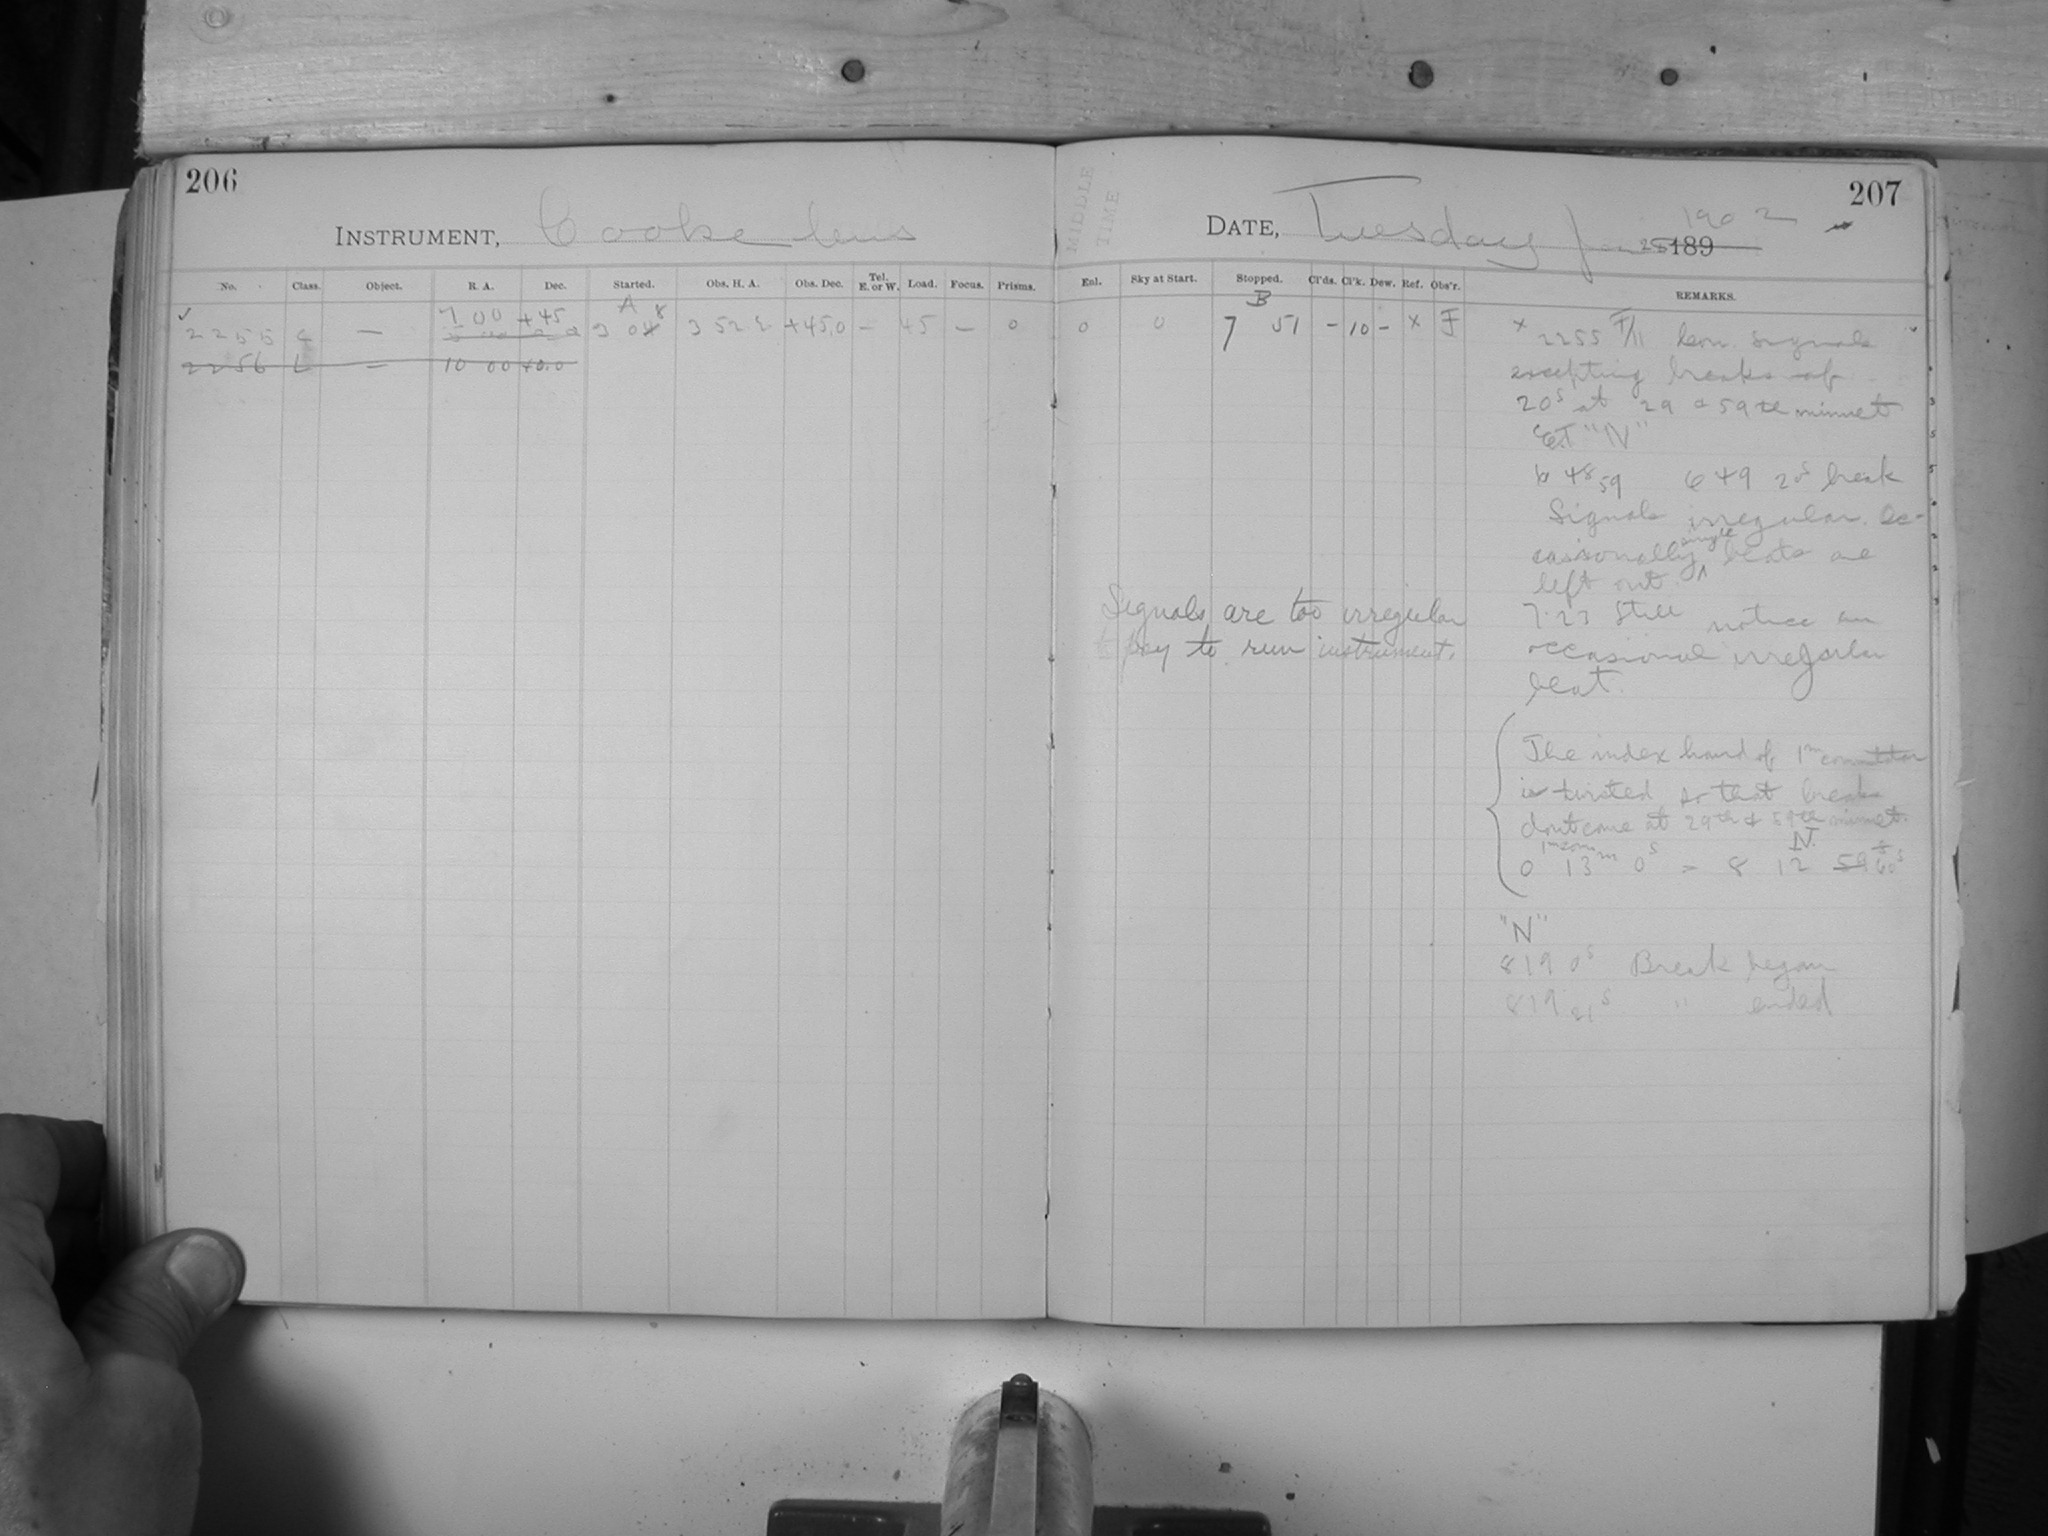 206
INSTRUMENT, Cooke lens
No. Class. Object. R. A. Dec. Started. Obs. H. A. Obs. Dec. Tel. E. or W. Load. Focus. Prisms.
A
7 00 +45 8
2255 C — 3 04 3 52 +45.0 — 45 — 0
2256 L — 10 00 +0.0
MIDDLE
TIME
207
DATE, Tuesday Jan 28 189 1902
Enl. Sky at Start. Stopped. Cl'ds. Cl'k. Dew. Ref. Obs'r. REMARKS.
B
0 0 7 51 - 10 - x F
x 2255 F/11 signals
excepting breaks of
20s at 29 & 59th minute
"N"
6 48 59 6 49 20s break
Signals irregular. Oc-
casionally single beats are
left out.
7.23 Still notice an
occasional irregular
beat.
Signals are too irregular
to run instrument.
The index hand of 1m
is twisted so that breaks
dont come at 29th & 59th minute.
N.
0 13m 0s = 8 12 59 60s
"N"
819 0s Break began
819 21s " ended